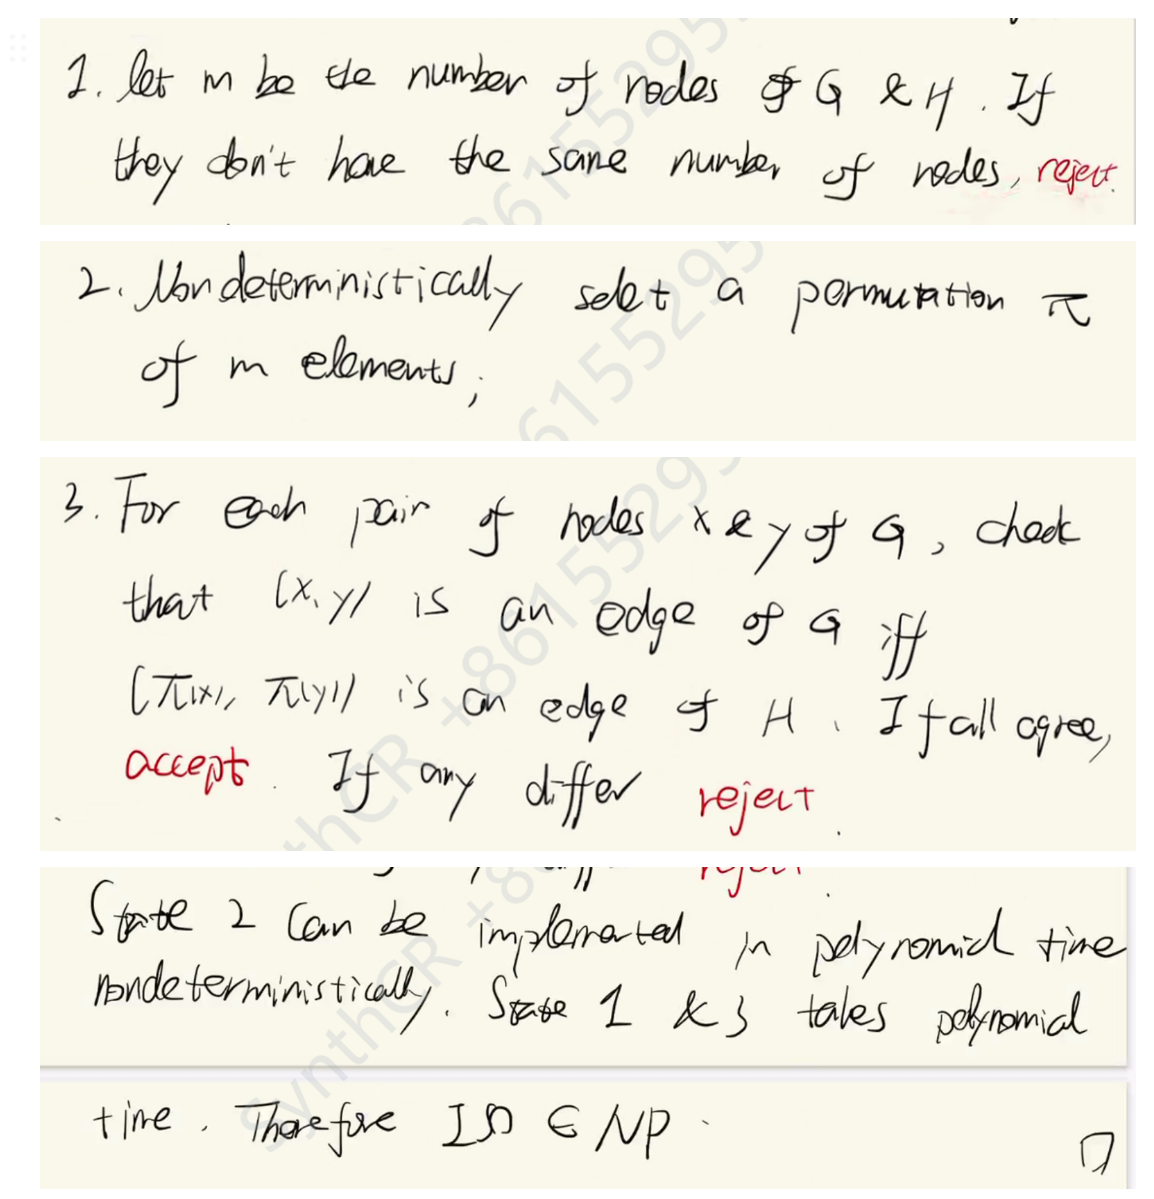 1. let m be the number of nodes of G & H. If
they don't have the same number of nodes, reject.
2. Nondeterministically select a permutation π
of m elements;
3. For each pair of nodes x & y of G, check
that (x, y) is an edge of G iff
(π(x), π(y)) is an edge of H. If all agree,
accept. If any differ reject.
State 2 can be implemented in polynomial time
nondeterministically. State 1 & 3 takes polynomial
time. Therefore ∈ NP.
SynthCR +86155295